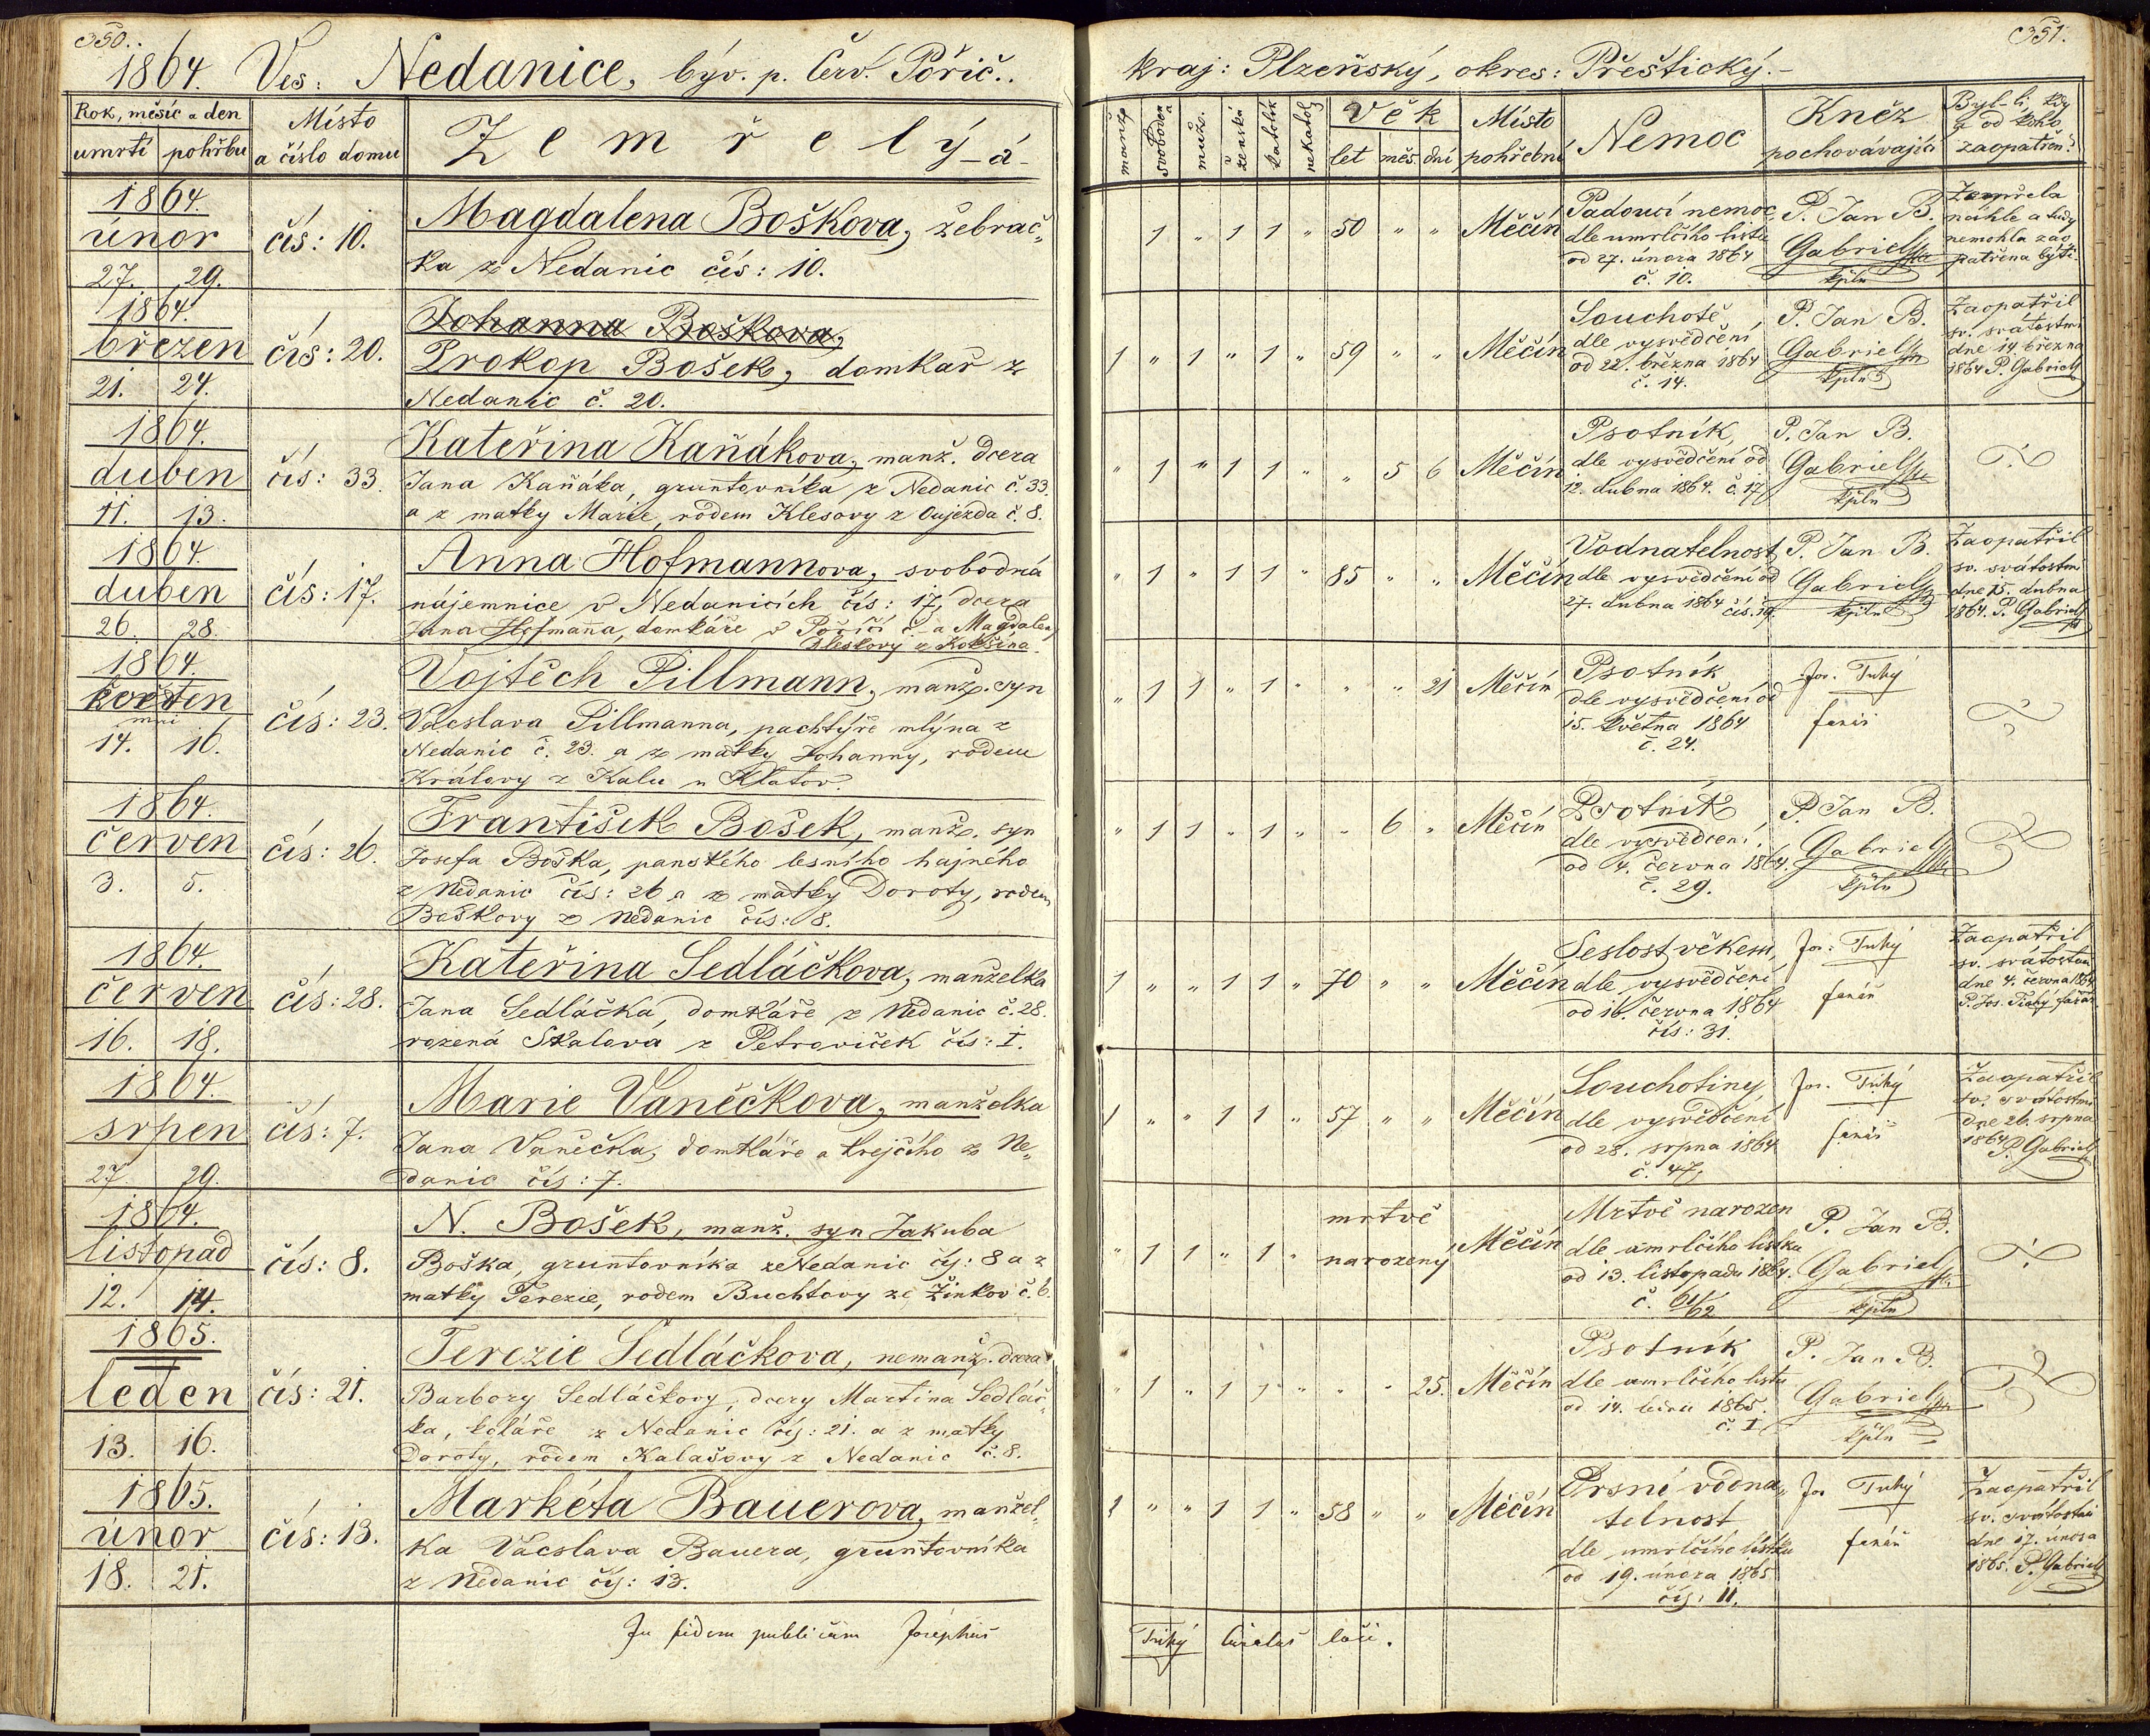 350.
1864. Ves: Nedanice, býv. p. Červ. Pořič.
Rok, měsíc a den
umrtí pohřbu
Místo
a číslo domu
Zemřelý-á-
1864.
únor
27. 29.
čís: 10.
Magdalena Boškova, žebrač-
ka z Nedanic čís: 10.
1864.
březen
21. 24.
čís: 20.
Johanna Boškova,
Prokop Bošek, domkař z
Nedanic č. 20.
1864.
duben
11. 13.
čís: 33.
Kateřina Kaňákova, manž. dcera
Jana Kaňáka, gruntovníka z Nedanic č. 33.
a z matky Marie, rodem Klesovy z Oujezda č. 8.
1864.
duben
26. 28.
čís: 17.
Anna Hofmannova, svobodná
nájemnice v Nedanicích čís: 17, dcera
Jana Hofmanna, domkáře v Poříčí č. a Magdaleny
z Kokšína
1864.
květen
14. 16.
čís: 23.
Vojtěch Pillmann, manž. syn
Vácslava Pillmanna, pachtýře mlýna z
Nedanic č. 23. a z matky Johanny, rodem
Královy z Kalu u Klatov.
1864.
červen
3. 5.
čís: 26.
František Bošek, manž. syn
Josefa Boška, panského lesního hajného
z Nedanic čís: 26 a z matky Doroty, rodem
Boškovy z Nedanic čís: 8.
1864.
červen
16. 18.
čís: 28.
Kateřina Sedláčkova, manželka
Jana Sedláčka, domkáře z Nedanic č. 28.
rozená Skalová z Petroviček čís: I.
1864.
srpen
27. 29.
čís: 7.
Marie Vaněčkova, manželka
Jana Vaněčka, domkáře a krejčího z Ne-
danic čís: 7.
1864.
listopad
12. 14.
čís: 8.
N. Bošek, manž. syn Jakuba
Boška, gruntovníka z Nedanic čís: 8 a z
matky Terezie, rodem Buchtovy ze Žinkov č. 6.
1865.
leden
13. 16.
čís: 21.
Terezie Sedláčkova, nemanž. dcera
Barbory Sedláčkovy, dcery Martina Sedláč-
ka, koláře z Nedanic čís: 21. a z matky
Doroty, rodem Kalašovy z Nedanic č. 8.
1865.
únor
18. 21.
čís: 13.
Markéta Bauerova, manžel-
ka Vácslava Bauera, gruntovníka
z Nedanic čís: 13.
In fidem publicam Josephus
351.
kraj: Plzeňský, okres: Přeštický.-
manž. svoboden a muž. ženská katolík nekatol.
Věk
let měs. dní
Místo
pohřební
Nemoc
Kněz
pochovávající
Byl-li, kdy
a od koho
zaopatřen?
1 " 1 1 " 50 " " Měčín
Padoucí nemoc,
dle umrlčího listu
od 27. února 1864
č. 10.
P. Jan B.
Gabriel
kpln
Zemřela
náhle a tudy
nemohla zao
patřena býti.
1 " 1 " 1 " 59 " " Měčín
Souchotě
dle vysvědčení
od 22. března 1864
č. 14.
P. Jan B.
Gabriel
kpln
Zaopatřil
sv. svátostmi
dne 14 března
1864 P. Gabriel
" 1 " 1 1 " " 5 6 Měčín
Psotník,
dle vysvědčení od
12. dubna 1864. č. 17
P. Jan B.
Gabriel
kpln
" 1 " 1 1 " 85 " " Měčín
Vodnatelnost
dle vysvědčení od
27. dubna 1864 čís. 19.
P. Jan B.
Gabriel
kpln
Zaopatřil
sv. svátostmi
dne 15. dubna
1864. P. Gabriel
" 1 1 " 1 " " " 21 Měčín
Psotník
dle vysvědčení od
15. května 1864
č. 24.
Jos. Tuhý
farář
" 1 1 " 1 " " 6 " Měčín
Psotník
dle vysvědčení
od 4. června 1864.
č. 29.
P. Jan B.
Gabriel
kpln
1 " " 1 1 " 70 " " Měčín
Seslost věkem,
dle vysvědčení
od 16. června 1864
čís: 31.
Jos: Tuhý
farář
Zaopatřil
sv. svátostmi
dne 4. června 1864
P. Jos. Tuhý farář
1 " " 1 1 " 57 " " Měčín
Souchotiny
dle vysvědčení
od 28. srpna 1864
č. 47.
Jos. Tuhý
farář
Zaopatřil
sv. svátostmi
dne 26. srpna
1864 P. Gabriel
" 1 1 " 1 " mrtvě
narozený Měčín
Mrtvě narozen
dle umrlčího lístku
od 13. listopadu 1864.
č. 61/62
P. Jan B.
Gabriel
kpln
" 1 " 1 1 " " " 25. Měčín
Psotník
dle umrlčího listu
od 14. ledna 1865.
č. I
P. Jan B.
Gabriel
kpln
1 " " 1 1 " 58 " " Měčín
Prsní vodna-
telnost
dle umrlčího lístku
od 19. února 1865
čís: 11.
Jos Tuhý
farář
Zaopatřil
sv. svátostmi
dne 17. února
1865. P. Gabriel
Tuhý curatus loci.